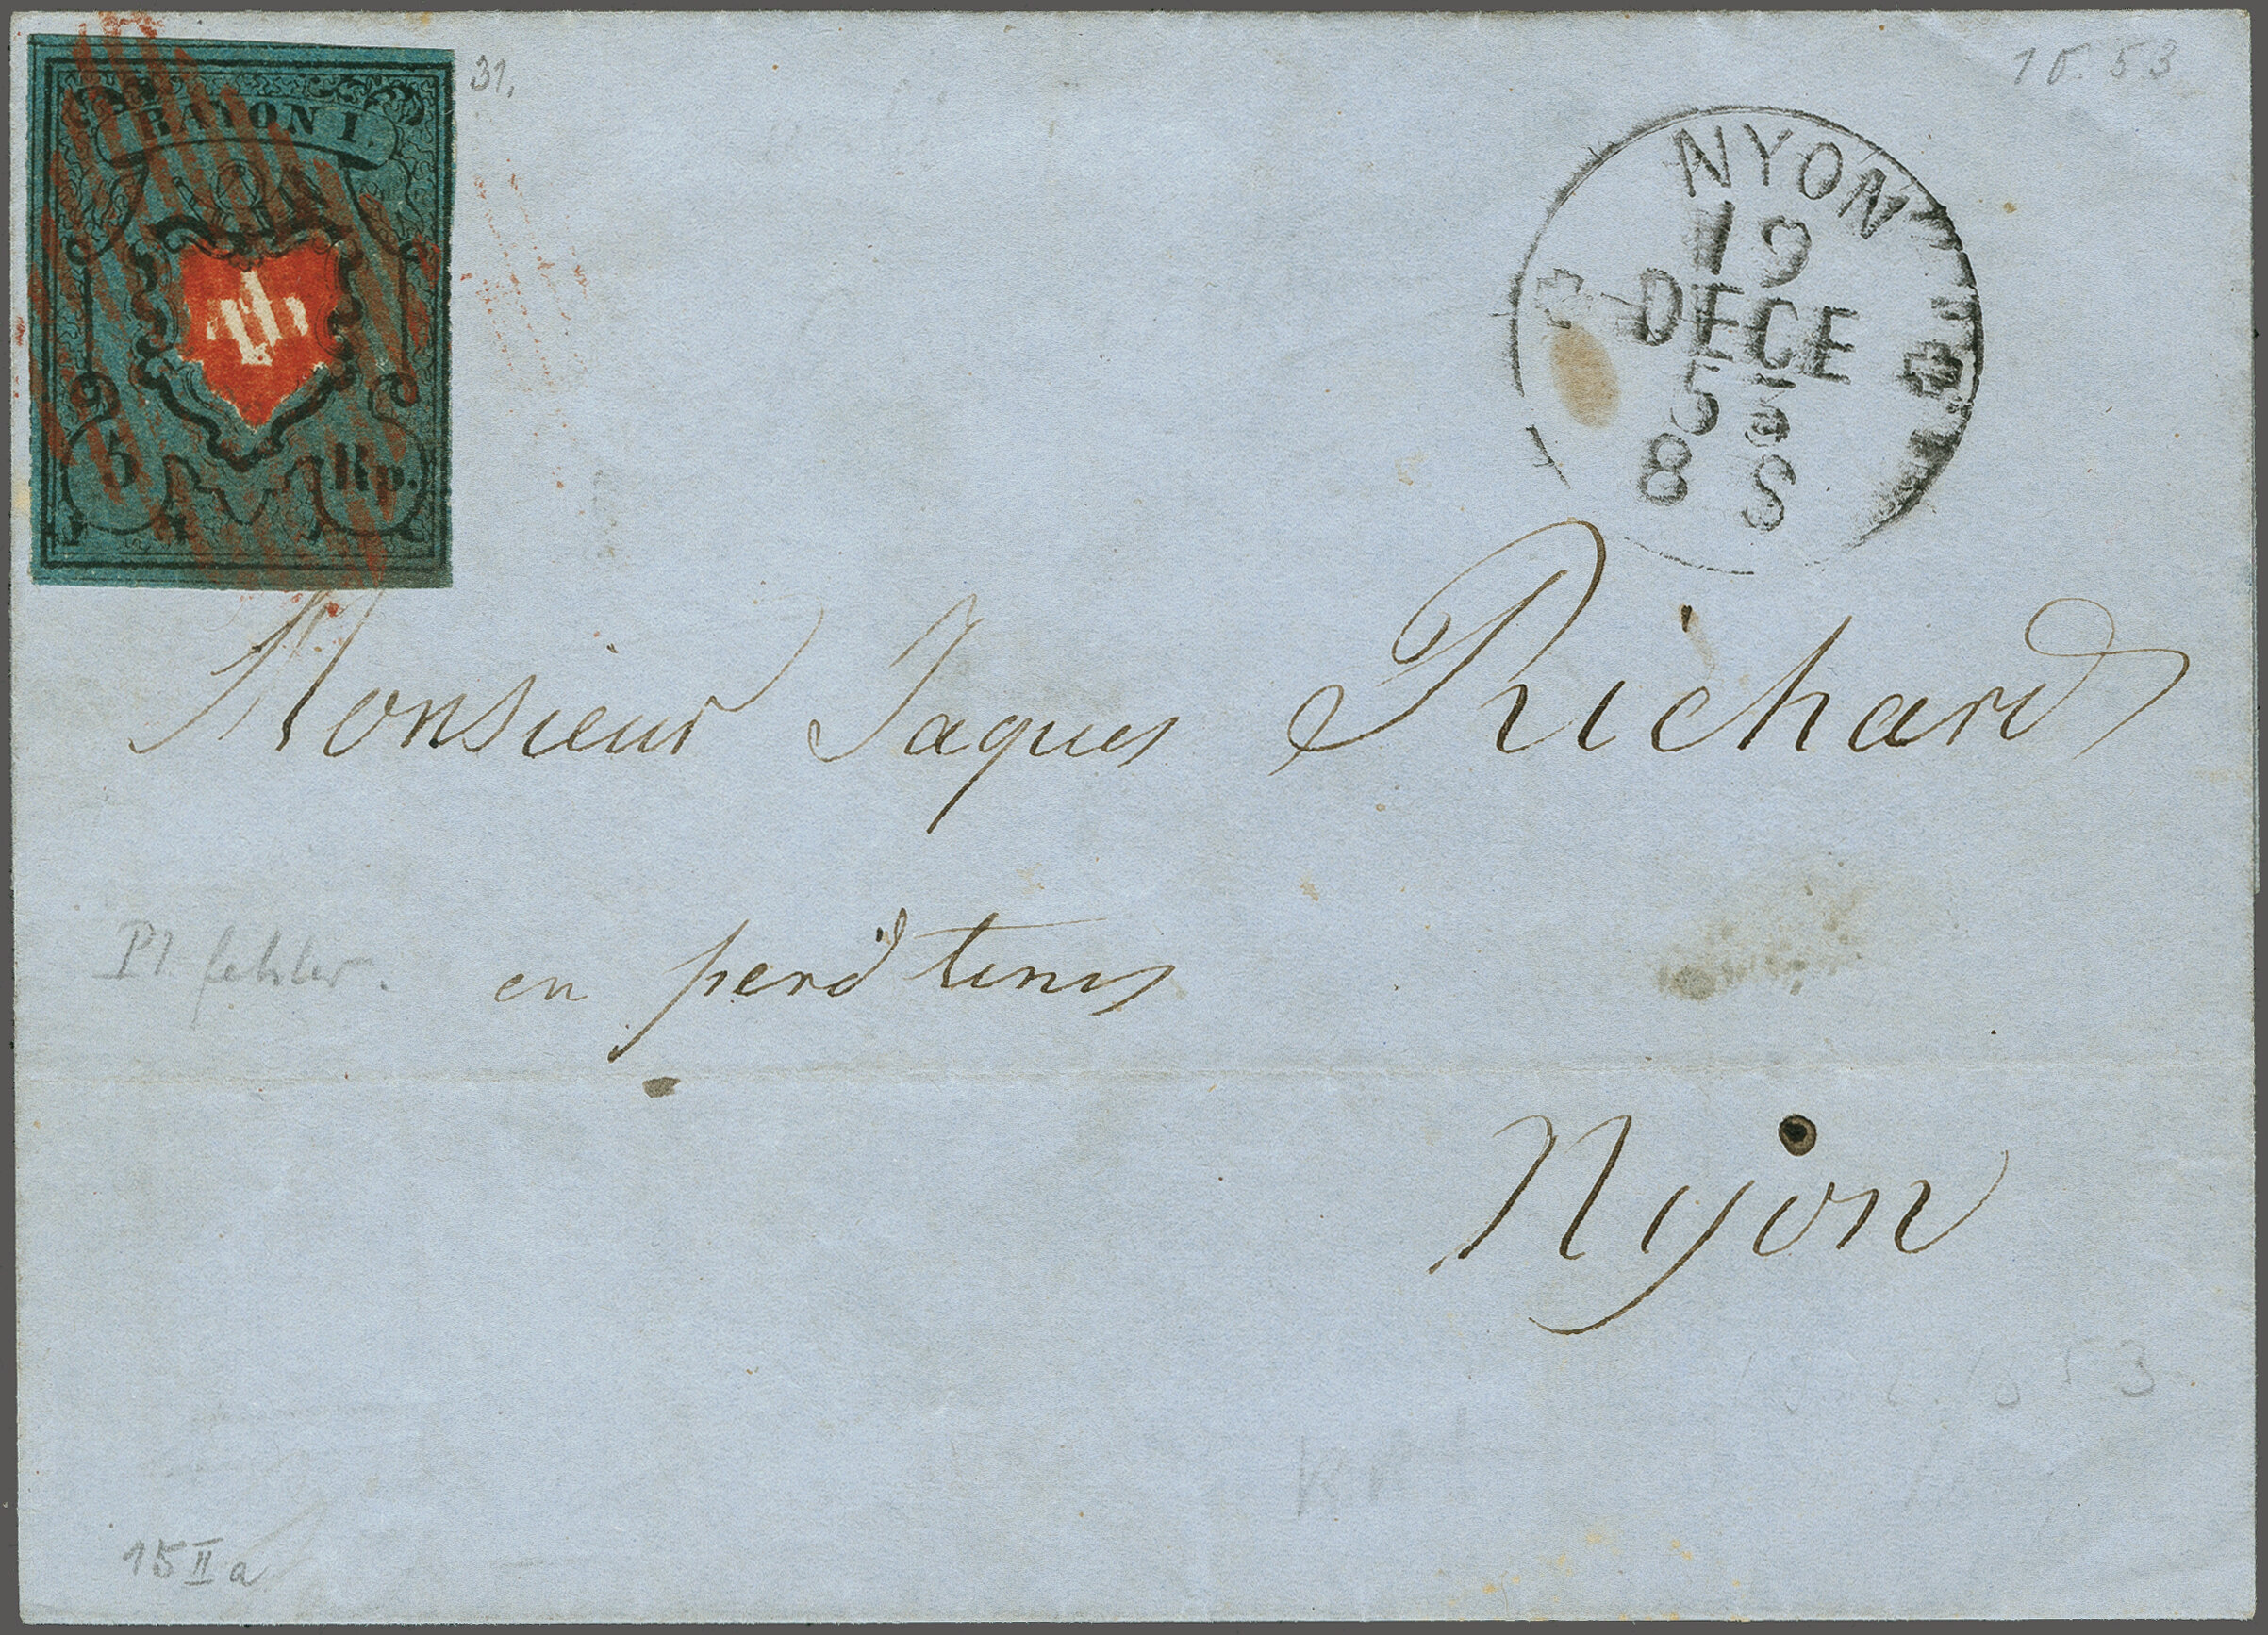 31.
RAYON I.
5 Rp.
NYON
19
DECE
53
8 S
Monsieur Jaques Richard
Pl. fehler.
en perd tems
Nyon
1853
15 II a